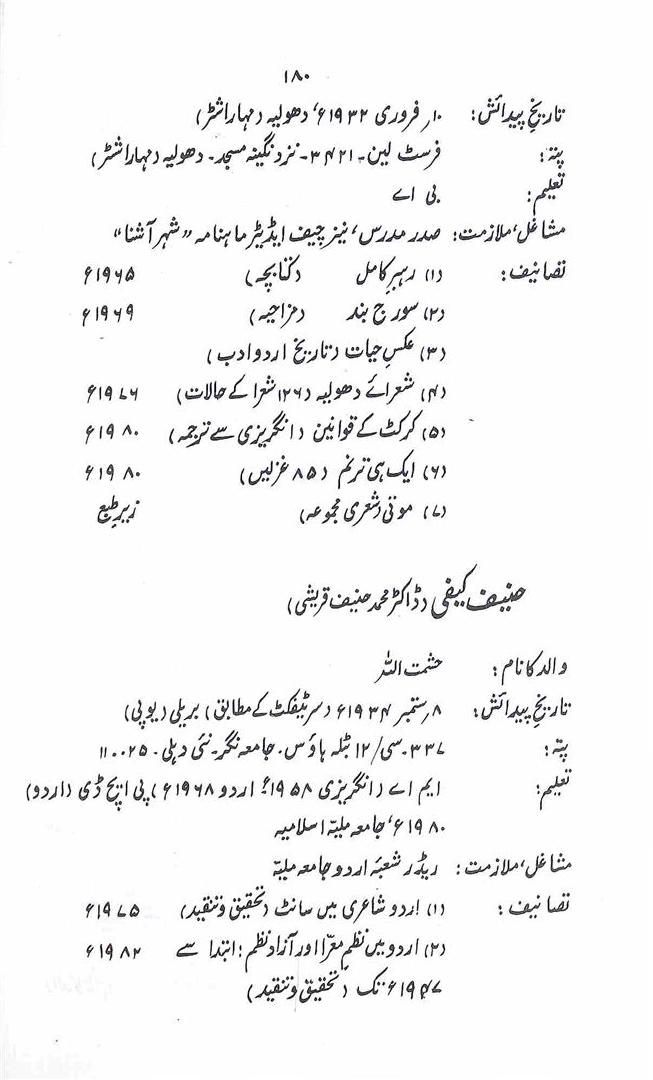 ۱۸۰
تاریخِ پیدائش: ۱۰ر فروری ۱۹۳۲ء، دھولیہ (مہاراشٹر)
پتہ: فرسٹ لین۔ ۳۴۲۱۔ نزد نگینہ مسجد۔ دھولیہ (مہاراشٹر)
تعلیم: بی اے
مشاغل، ملازمت: صدر مدرس، نیز چیف ایڈیٹر ماہنامہ "شہر آشنا"
تصانیف: (۱) رہبرِ کامل (کتابچہ) ۱۹۶۵ء
(۲) سورج بند (مزاحیہ) ۱۹۶۹ء
(۳) عکسِ حیات (تاریخ اردو ادب)
(۴) شعرائے دھولیہ (۱۲۶ شعرا کے حالات) ۱۹۷۶ء
(۵) کرکٹ کے قوانین (انگریزی سے ترجمہ) ۱۹۸۰ء
(۶) ایک ہی ترنم (۸۵ غزلیں) ۱۹۸۰ء
(۷) موتی (شعری مجموعہ) زیرِ طبع
حنیف کیفی (ڈاکٹر محمد حنیف قریشی)
والد کا نام: حشمت اللہ
تاریخِ پیدائش: ۸ر ستمبر ۱۹۳۴ء (سرٹیفکٹ کے مطابق) بریلی (یوپی)
پتہ: ۳۳۷۔سی/۱۲ بٹلہ ہاؤس۔ جامعہ نگر۔ نئی دہلی۔ ۱۱۰۰۲۵
تعلیم: ایم اے (انگریزی ۱۹۵۸ء؛ اردو ۱۹۶۸ء) پی ایچ ڈی (اردو)
۱۹۸۰ء، جامعہ ملیّہ اسلامیہ
مشاغل، ملازمت: ریڈر شعبۂ اردو جامعہ ملیّہ
تصانیف: (۱) اردو شاعری میں سانٹ (تحقیق و تنقید) ۱۹۷۵ء
(۲) اردو میں نظمِ معرّا اور آزاد نظم؛ ابتدا سے ۱۹۸۲ء
۱۹۴۷ء تک (تحقیق و تنقید)